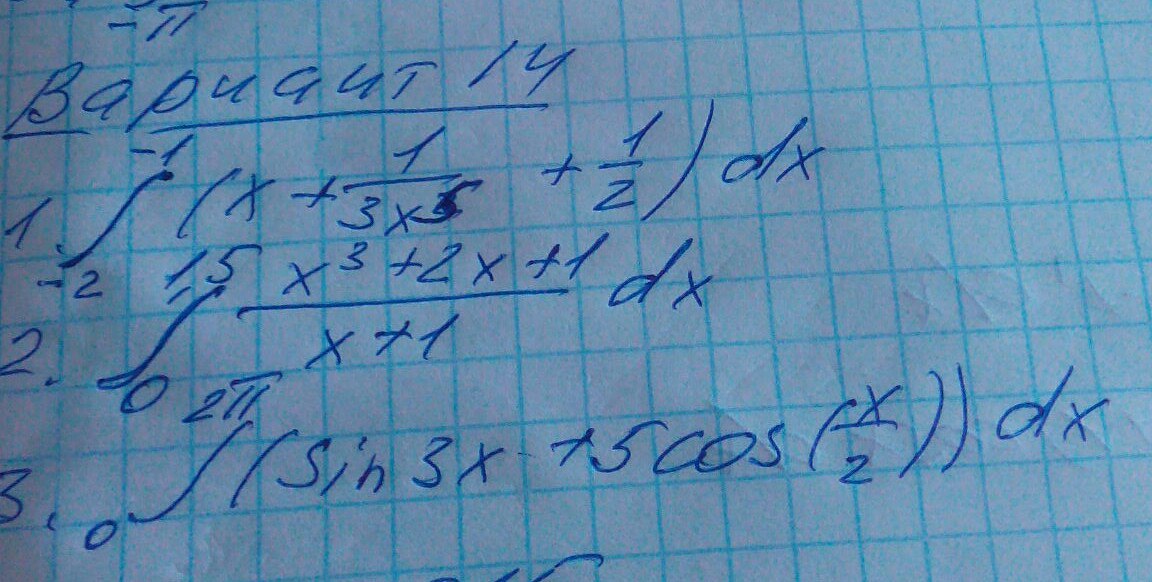 -π
Вариант 14
1. ∫_{-2}^{-1} (x + 1/(3x⁵) + 1/2) dx
2. ∫_{0}^{15} (x³+2x+1)/(x+1) dx
3. ∫_{0}^{2π} (sin3x + 5cos(x/2)) dx